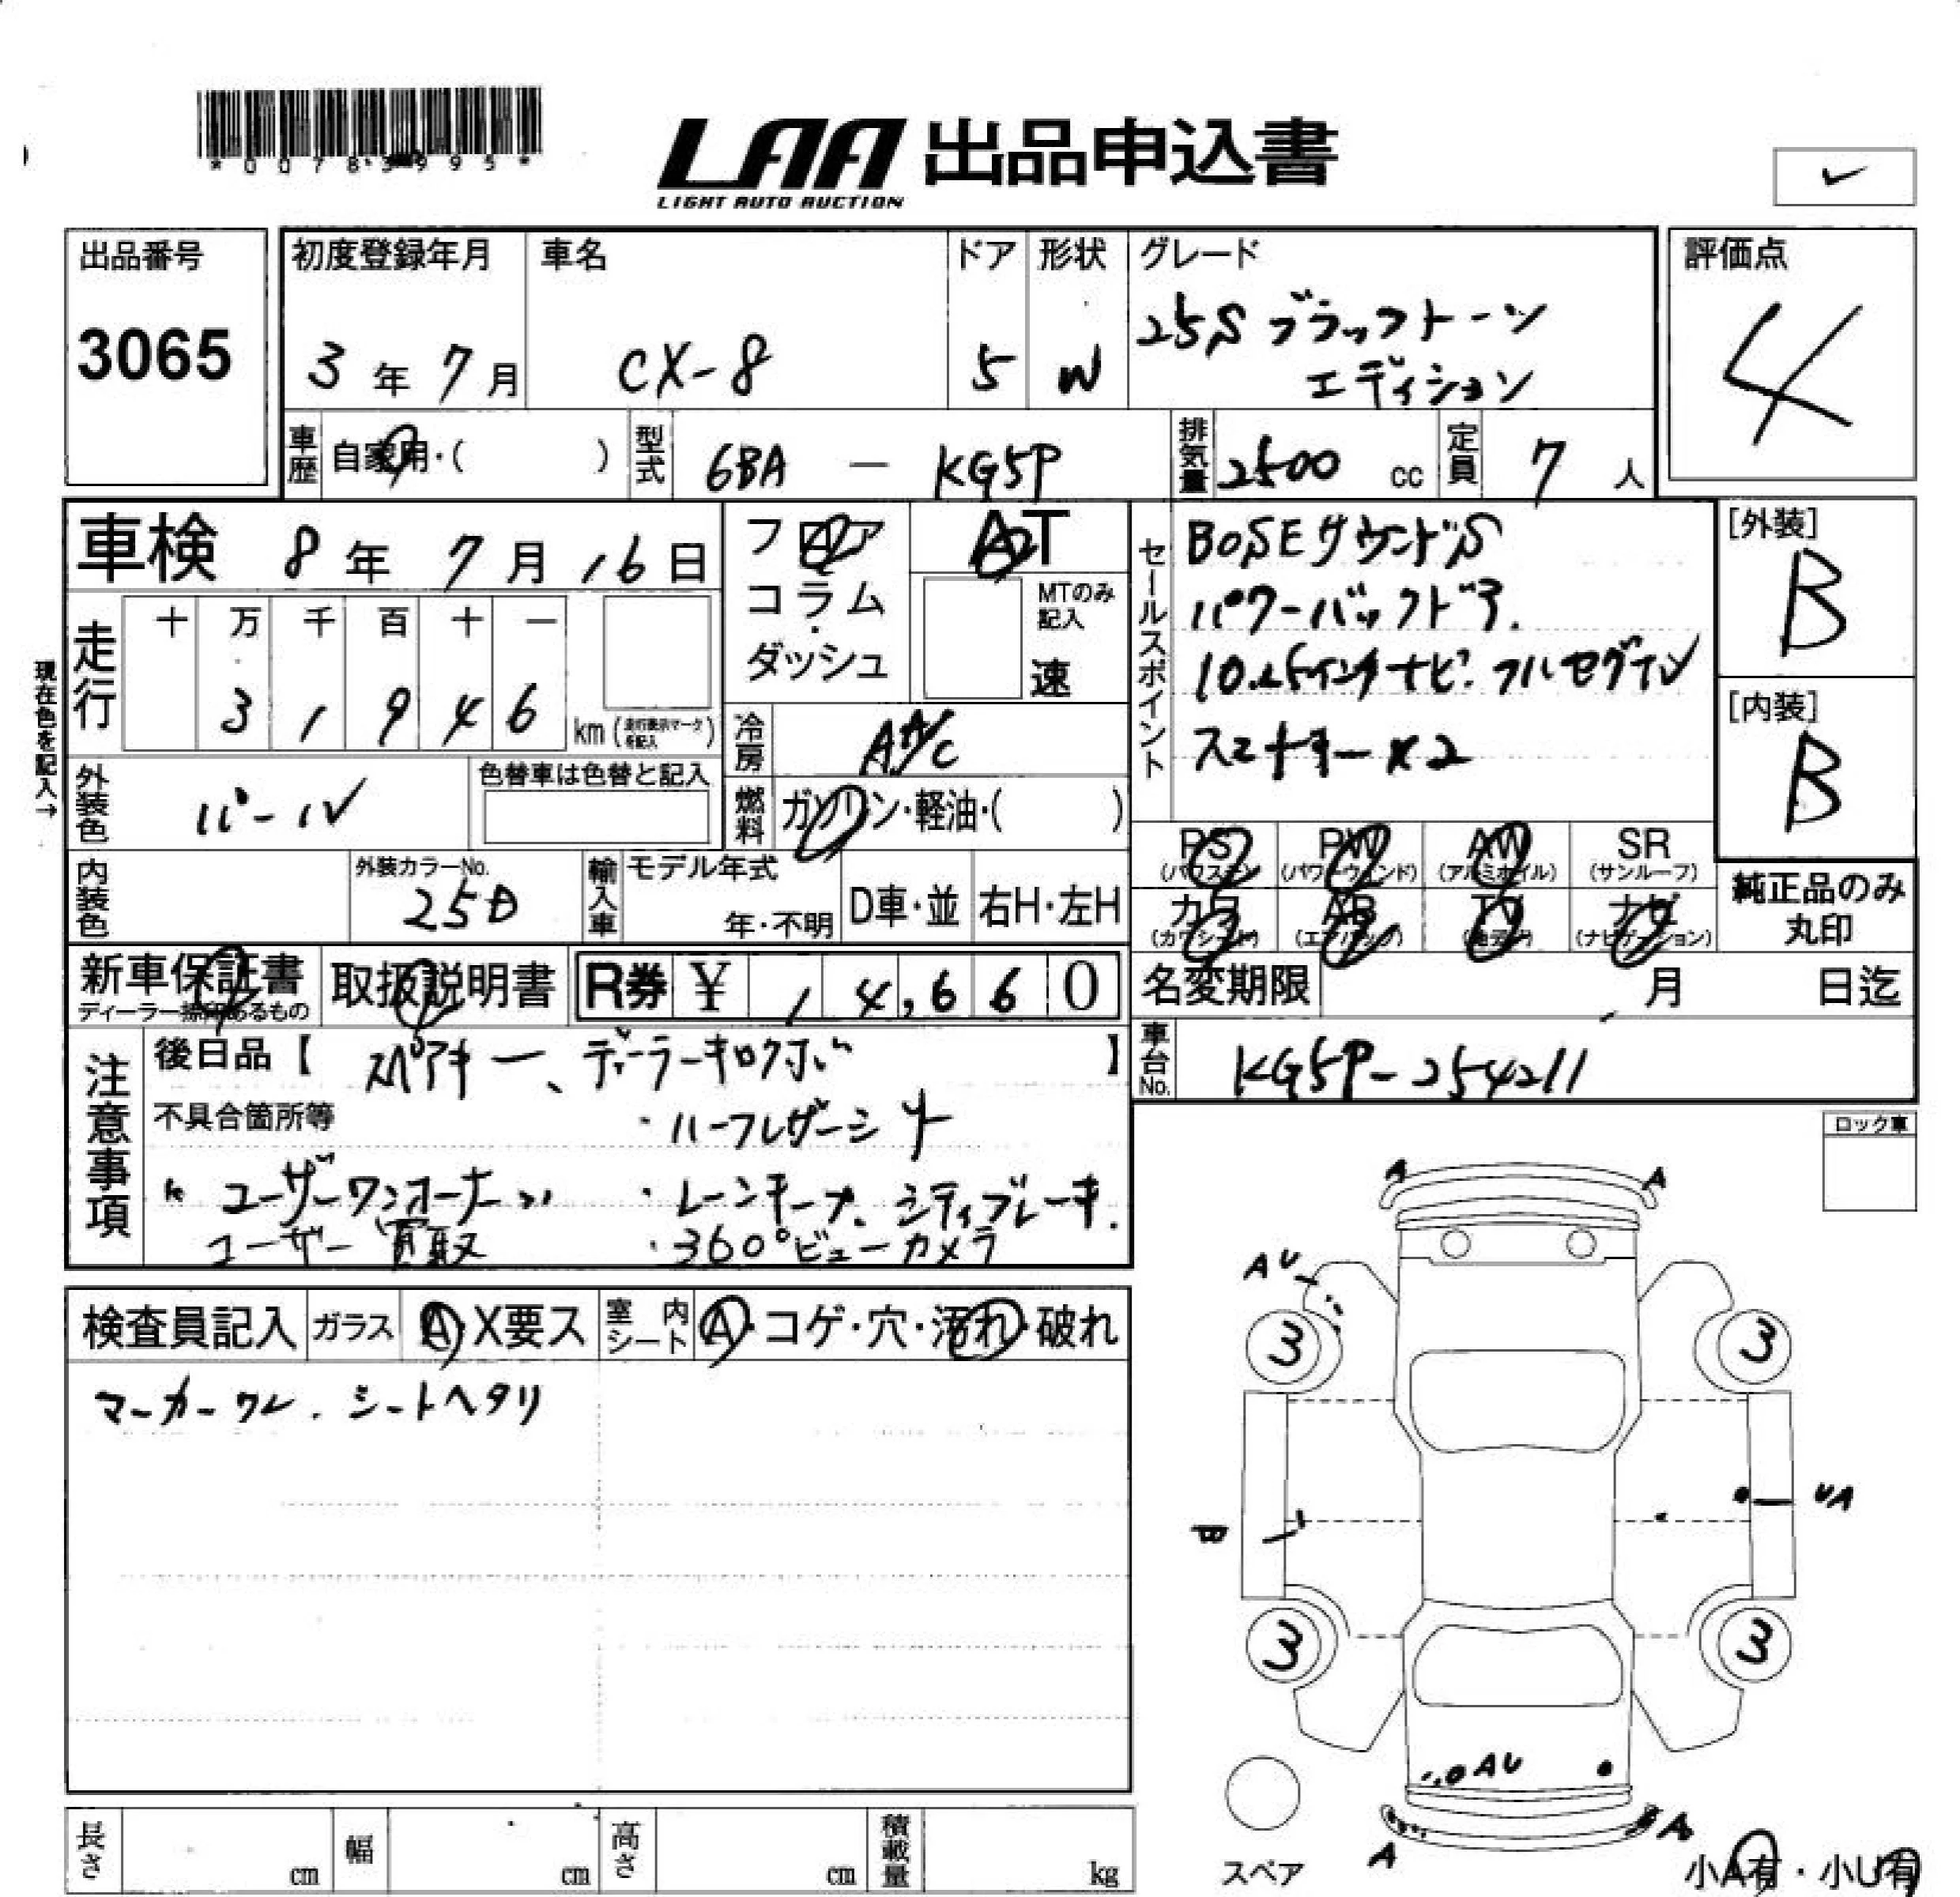 *00783995*
LAA 出品申込書
LIGHT AUTO AUCTION
出品番号
3065
初度登録年月
3年 7月
車名
CX-8
ドア
5
形状
W
グレード
25S ブラックトーン
エディション
評価点
4
車歴 自家用・( )
型式 6BA — KG5P
排気量 2500 cc
定員 7 人
車検 8年 7月 16日
フロア
コラム
・
ダッシュ
AT
MTのみ
記入
速
セールスポイント
BOSEサウンドS
パワーバックドア.
10.25インチナビ.フルセグTV
スマートキーx2
[外装]
B
[内装]
B
現在色を記入→
走行
十 万 千 百 十 一
3 1 9 4 6
km (走行表示マークを記入)
冷房 AA/C
外装色 パール
色替車は色替と記入
燃料 ガソリン・軽油・( )
内装色
外装カラーNo.
25D
輸入車
モデル年式
年・不明
D車・並
右H・左H
PS
(パワステ)
PW
(パワーウインド)
AW
(アルミホイル)
SR
(サンルーフ)
カワ
(カワシート)
AB
(エアバッグ)
TV
ナビ
(ナビゲーション)
純正品のみ
丸印
新車保証書
取扱説明書
R券 ¥ 1 4,6 6 0
名変期限 月 日迄
車台No. KG5P-254211
注意事項
後日品【 スペアキー、ディーラーキロクボ 】
不具合箇所等
・ハーフレザーシート
ユーザーワンオーナー
・レーンキープ、シティブレーキ.
ユーザー買取
・360°ビューカメラ
ロック車
検査員記入
ガラス A・X要ス
室内シート A・コゲ・穴・汚れ・破れ
マーカーワレ. シートヘタリ
A
A
AU
3
3
B
UA
3
3
AU
A
A
スペア
小A有・小U有
長さ cm
幅 cm
高さ cm
積載量 kg